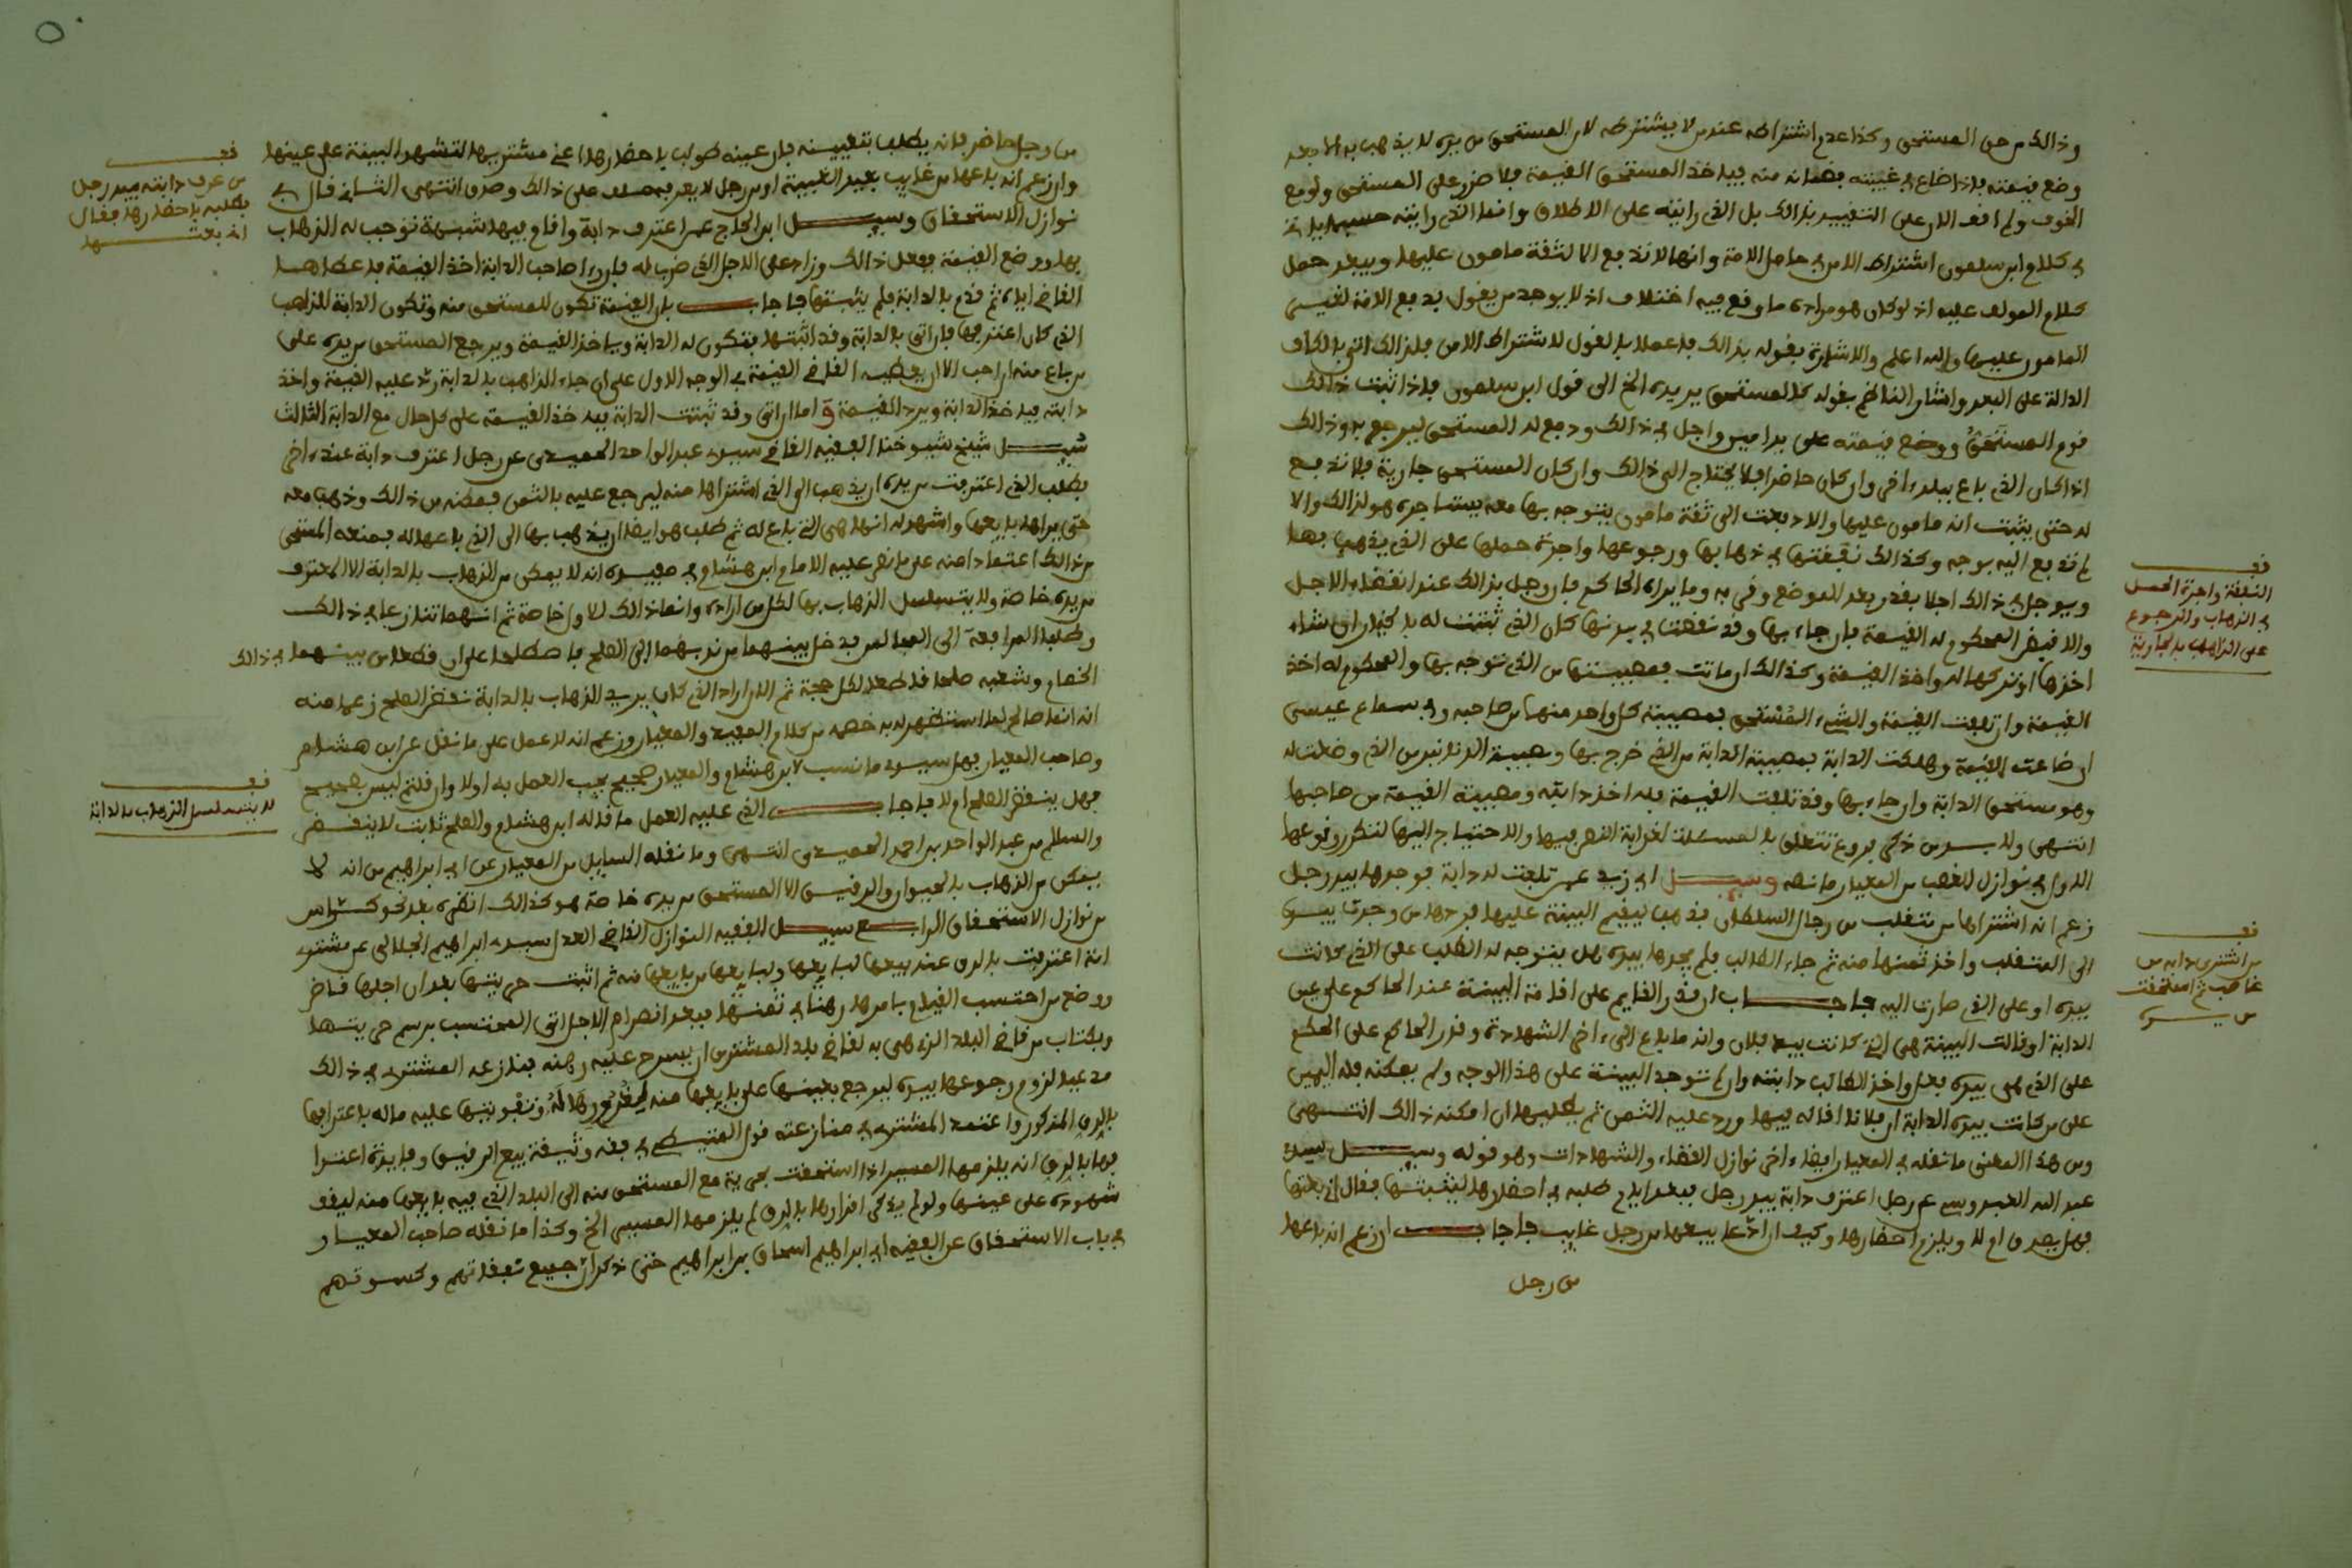 وذالك من حق المستحق وكذا عدم اشتراطه عند من لا يشترطه لان المستحق من يده لا يذهب به الا بعد
وضع قيمته فاذا ضاع في غيبته فضمانه منه فياخذ المستحق القيمة فلا ضرر على المستحق ولو مع
الخوف ولم اقف الان على التقييد بذالك بل الذي رايته على الاطلاق وانما الذي رايته
في كلام ابن سلمون اشتراط الامن في حامل الامة وانها لا تدفع الا لثقة مامون عليها ويبعد حمل
كلام المولف عليه اذ لو كان هو مراده ما وقع فيه اختلاف اذ لا يوجد من يقول بدفع الامة لغير
المامون عليها والله اعلم والاشارة بقوله بذالك فاعملا بالقول لاشتراط الامن فلذالك اتى بالكاف
الدالة على البعد واشار الناظم بقوله كالمستحق يريده الخ الى قول ابن سلمون فاذا ثبت ذالك
قوم المستحق ووضع قيمته على يد امين واجل في ذالك ودفع له المستحق ليرجع به وذالك
اذا كان الذي باع ببلد اخر وان كان حاضرا فلا يحتاج الى ذالك وان كان المستحق جارية فلا تدفع
له حتى يثبت انه مامون عليها والا دفعت الى ثقة مامون يتوجه بها معه يستاجره هو لذالك والا
لم تدفع اليه بوجه وكذالك نفقتها في ذهابها ورجوعها واجرة حملها على الذي يذهب بها
ويوجل في ذالك اجلا بقدر بعد الموضع وقربه وما يراه الحاكم فان وجل بذالك عند انقضاء الاجل
والا قبض المحكوم له القيمة فان جاء بها وقد نقصت في بدنها كان الذي ثبتت له بالخيار ان شاء
اخذها او تركها له واخذ القيمة وكذالك ان ماتت فمصيبتها من الذي توجه بها والمحكوم له اخذ
القيمة وان تلفت القيمة والشيء المستحق فمصيبة كل واحد منهما من صاحبه وفي سماع عيسى
ان ضاعت القيمة وهلكت الدابة فمصيبة الدابة من الذي خرج بها ومصيبة الدنانير من الذي وضعت له
وهو مستحق الدابة وان جاء بها وقد تلفت القيمة فله اخذ دابته ومصيبة القيمة من صاحبها
انتهى ولا بد من ذكر فروع تتعلق بالمسئلة لغرابة النص فيها والاحتياج اليها لتكرر وقوعها
الاول في نوازل الغصب من المعيار ما نصه وسيل ابن ابي زيد عمن تلفت له دابة فوجدها بيد رجل
زعم انه اشتراها من متغلب من رجال السلطان فذهب ليقيم البينة عليها فردها من وجدت بيده
الى المتغلب واخذ ثمنها منه ثم جاء الطالب فلم يجدها بيده هل يتوجه له الطلب على الذي كانت
بيده او على الذي صارت اليه فاجاب ان قدر القايم على اقامة البينة عند الحاكم على عين
الدابة او قالت البينة هي التي كانت بيد فلان وانه ما باع الى اخر الشهادة وقدر الحاكم على الحكم
على الذي هي بيده فعل واخذ الطالب دابته وان لم توجد البينة على هذا الوجه ولم يمكنه فله اليمين
على من كانت بيده الدابة ان فلانا اقاله فيها ورد عليه الثمن ثم يطلبها ان امكنه ذالك انتهى
ومن هذا المعنى ما نقله في المعيار ايضا اخر نوازل القضاء والشهادات وهو قوله وسيل سيدي
عبد الله العبدوسي عن رجل اعترف دابة بيد رجل فبعد ايام طلبه في احضارها ليثبتها فقال اني بعتها
فهل يصدق ام لا ويلزم احضارها وكيف ان ادعا بيعها من رجل غايب فاجاب ان زعم انه باعها
من رجل
فف
النفقة واجرة الحمل
في الذهاب والرجوع
على الذاهب بالجارية
فف
من اشترى دابة من
غاصب ثم استحقت
من يده
من رجل حاضر فانه يطلب بتعيينه فان عينه طولب باحضارها عند مشتريها لتشهد البينة على عينها
وان زعم انه باعها من غايب بعيد الغيبة او من رجل لا يعرفه حلف على ذالك وصدق انتهى الثاني قال في
نوازل الاستحقاق وسيل ابن الحاج عمن اعترف دابة واقام فيها شبهة توجب له الذهاب
بها ووضع القيمة ففعل ذالك وزاد على الاجل الذي ضرب له فاراد صاحب الدابة اخذ القيمة فاعطاها
القاضي اياه ثم قدم بالدابة فلم يثبتها فاجاب بان القيمة تكون للمستحق منه وتكون الدابة للذاهب
الذي كان اعترفها فان اتى بالدابة وقد اثبتها فتكون له الدابة وياخذ القيمة ويرجع المستحق من يده على
من باع منه ان احب الا ان يعطيه القاضي القيمة في الوجه الاول على ان جاء الذاهب بالدابة رد عليه القيمة واخذ
دابته فياخذ الدابة ويرد القيمة واما ان اتى وقد ثبتت الدابة فياخذ القيمة على كل حال مع الدابة الثالث
سيل شيخ شيوخنا الفقيه القاضي سيدي عبد الواحد الحميدي عن رجل اعترف دابة عند اخر
فطلب الذي اعترفت من يده ان يذهب الى الذي اشتراها منه ليرجع عليه بالثمن فمكنه من ذالك وذهب معه
حتى يراها بايعها واشهد له انها هي التي باع له ثم طلب هو ايضا ان يذهب بها الى الذي باعها له فمنعه المستحق
من ذالك اعتمادا منه على ما نص عليه الامام ابن هشام في مفيده انه لا يمكن من الذهاب بالدابة الا المعترف
من يده خاصة ولا يتسلسل الذهاب بها لكل من اراده وانما ذالك للاول خاصة ثم انهما تنازعا في ذالك
وطلبا المرافعة الى العمال من يدخل بينهما من ندبهما الى الصلح فاصطلحا على ان قطعا من بينهما في ذالك
الخصام وشغبه صلحا قاطعا لكل حجة ثم الان اراد الذي كان يريد الذهاب بالدابة نقض الصلح زعما منه
انه انما صالح لما استظهر له به خصمه من كلام المفيد والمعيار وزعم انه لا عمل على ما نقل عن ابن هشام
وصاحب المعيار فهل سيدي ما نسب لابن هشام والمعيار صحيح يجب العمل به اولا وان قلتم ليس بصحيح
فهل ينقض الصلح ام لا فاجاب الذي عليه العمل ما قاله ابن هشام والصلح ثابت لا ينقض
والسلام من عبد الواحد بن احمد الحميدي انتهى وما نقله السايل من المعيار عن ابي ابراهيم من انه لا
يمكن من الذهاب بالحيوان والرقيق الا المستحق من يده خاصة هو كذالك انظره بعد نحو كراس
من نوازل الاستحقاق الرابع سيل الفقيه النوازلي القاضي العدل سيدي ابراهيم الجلالي عن مشتري
امة اعترفت بالرق عند بيعها لبايعها ولبايعها من بايعها منه ثم اثبت حريتها بعد ان اجلها قاض
ووضع من احتسب القيام بامرها رهنا في ثمنها فبعد انصرام الاجل اتى المحتسب برسم حريتها
وبكتاب من قاضي البلد الذي هي به لقاضي بلد المشتري ان يسرح عليه رهنه فنازعه المشتري في ذالك
مدعيا لزوم رجوعها بيده ليرجع بعينها على بايعها منه وتفويتها عليه ماله باعترافها
بالرق المذكور واعتمد المشتري في منازعته قول الفشتالي في فقه وثيقة بيع الرقيق وفايدة اعترا
فها بالرق انه يلزمها المسير اذا استحقت بحرية مع المستحق منه الى البلد الذي فيه بايعها منه ليقف
شهوده على عينها ولو لم يذكر اقرارها بالرق لم يلزمها المسير الخ وكذا ما نقله صاحب المعيار
في باب الاستحقاق عن الفقيه ابي ابراهيم اسحاق بن ابراهيم حتى ذكر ان جميع نفقاتهم وكسوتهم
فف
من عرف دابته بيد رجل
فطلبه باحضارها فقال
انه بعتها
فف
لا يتسلسل الذهاب بالدابة